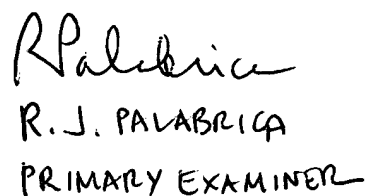 RPalabrica
R. J. PALABRICA
PRIMARY EXAMINER